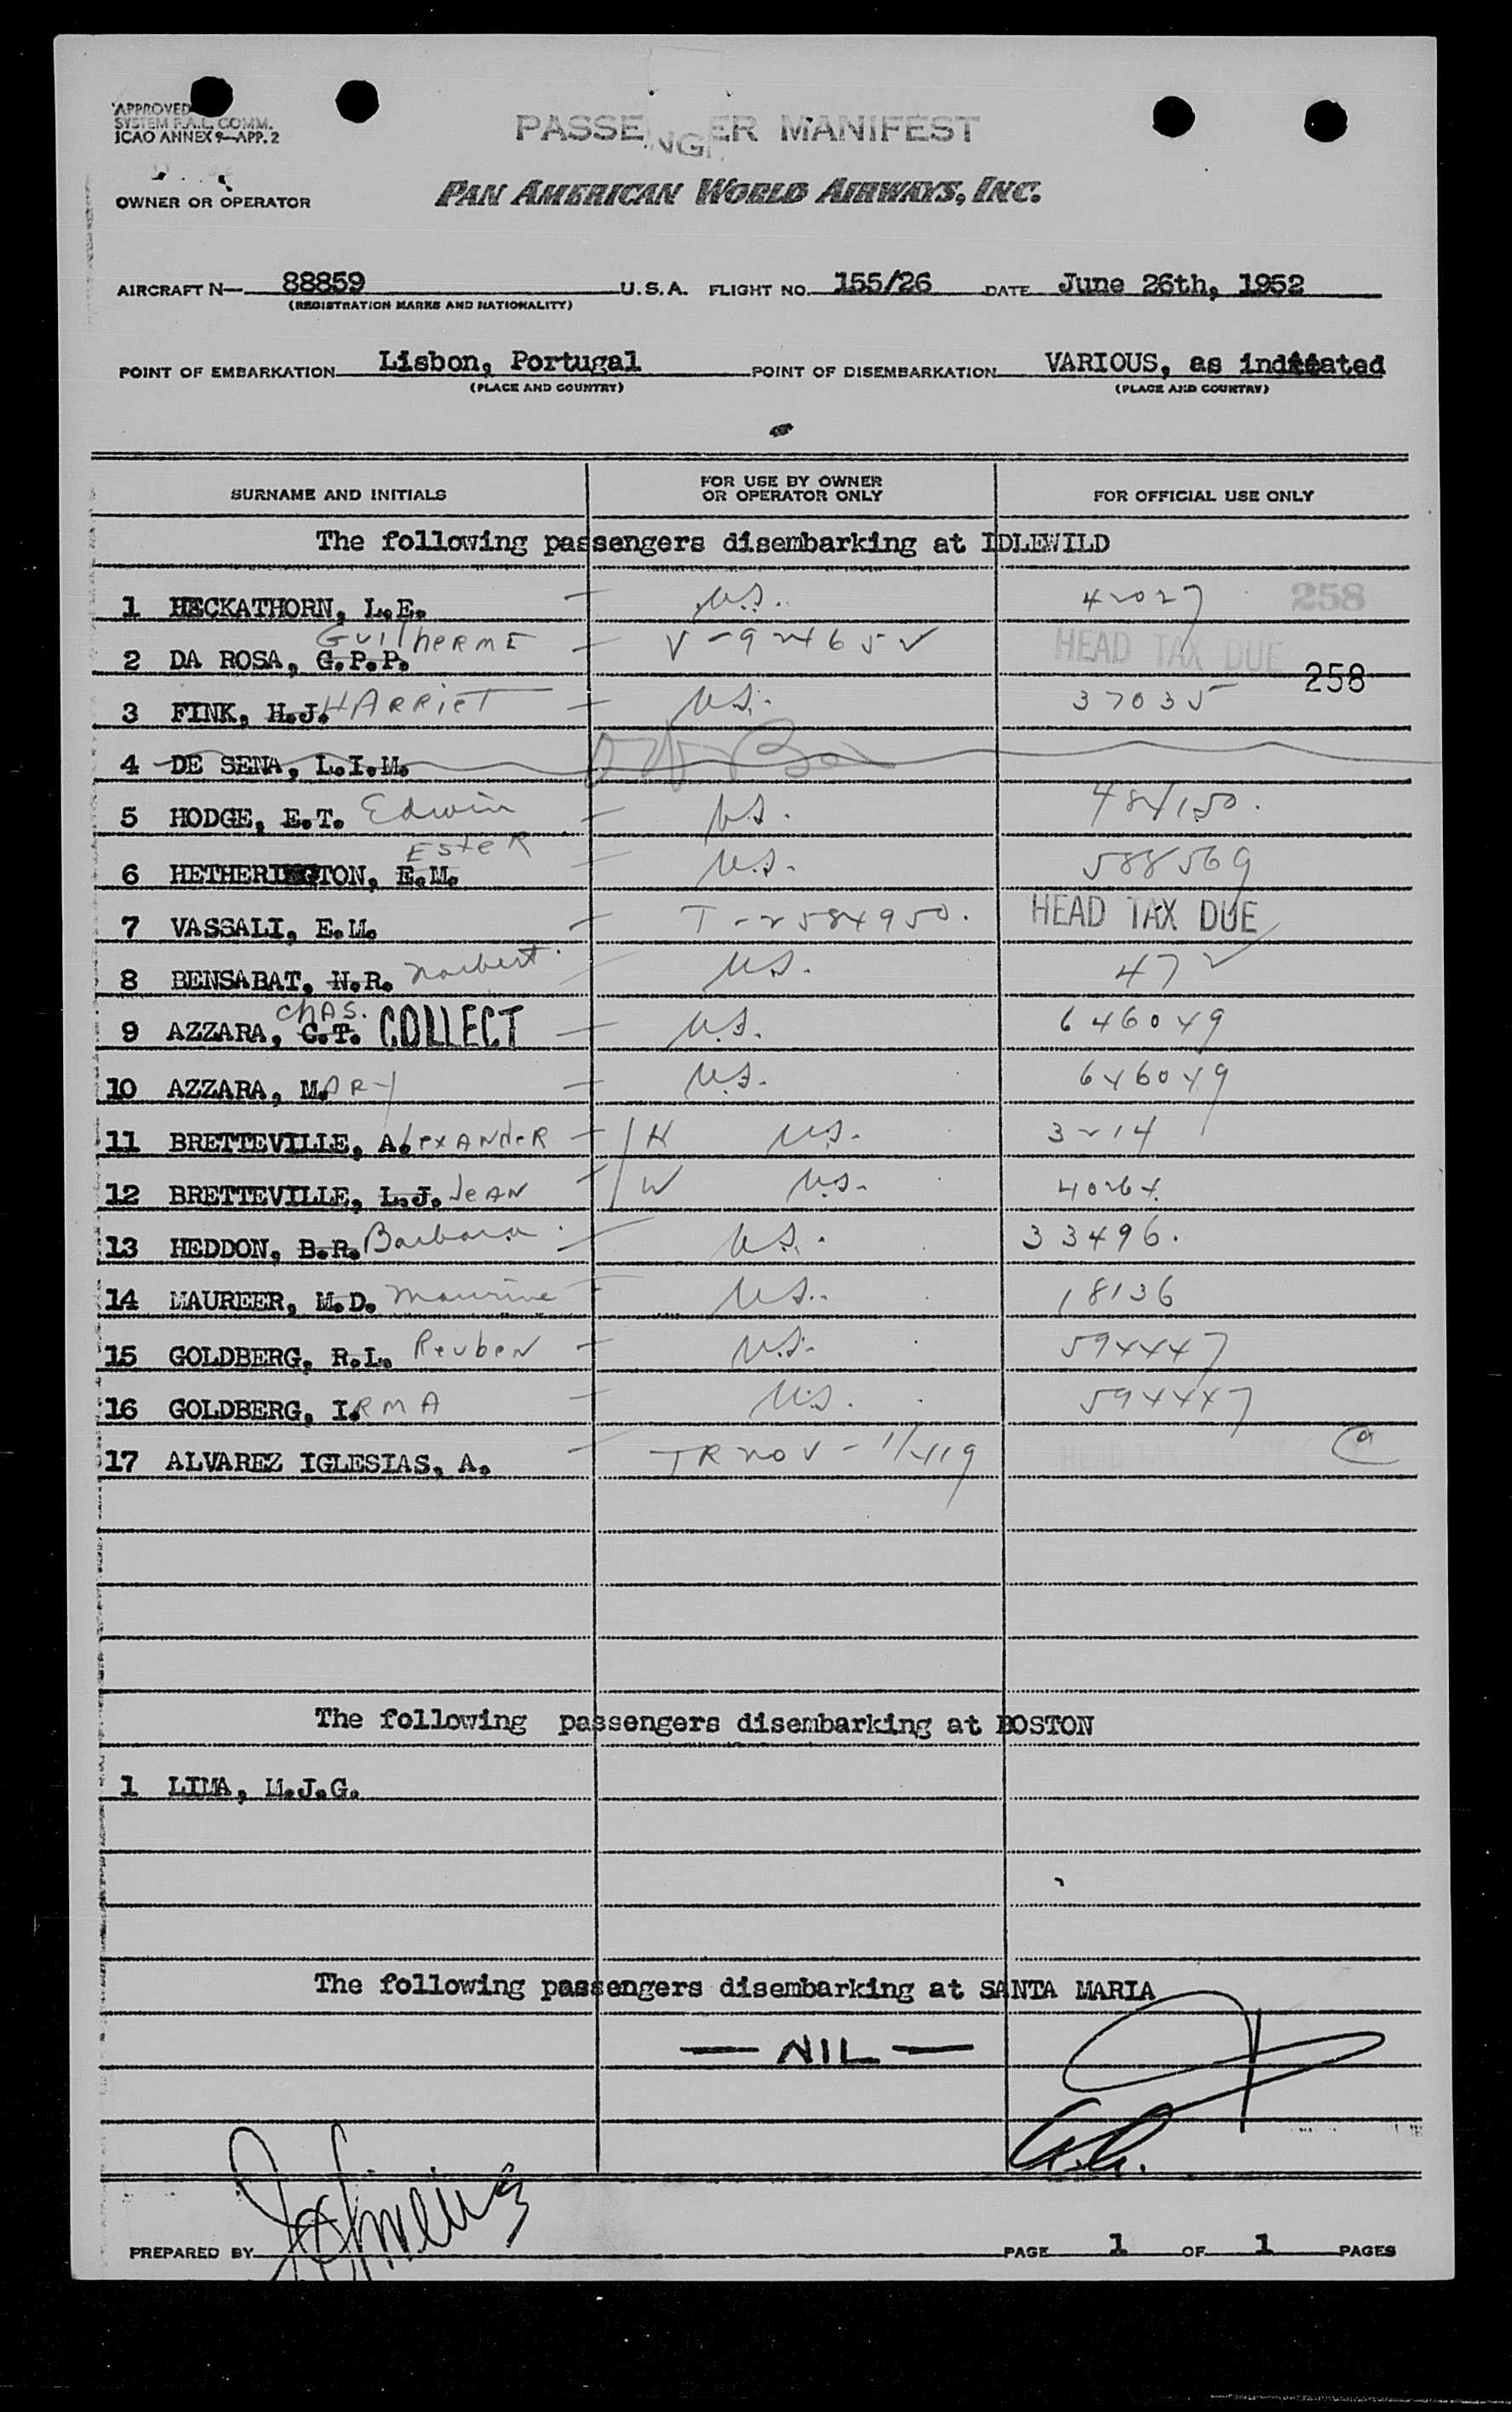 APPROVED
SYSTEM F.A.L. COMM.
ICAO ANNEX 9—APP. 2
PASSENGER MANIFEST
OWNER OR OPERATOR PAN AMERICAN WORLD AIRWAYS, INC.
AIRCRAFT N— 88859 U.S.A. FLIGHT NO. 155/26 DATE June 26th, 1952
(REGISTRATION MARKS AND NATIONALITY)
POINT OF EMBARKATION Lisbon, Portugal POINT OF DISEMBARKATION VARIOUS, as indicated
(PLACE AND COUNTRY) (PLACE AND COUNTRY)
SURNAME AND INITIALS FOR USE BY OWNER OR OPERATOR ONLY FOR OFFICIAL USE ONLY
The following passengers disembarking at IDLEWILD
1 HECKATHORN, L.E. — U.S. 42027 258
Guilherme
2 DA ROSA, G.P.P. — HEAD TAX DUE 258
3 FINK, H.J. HARRIET — U.S. 37035
4 DE SENA, L.I.M.
5 HODGE, E.T. Edwin — U.S.
Ester
6 HETHERINGTON, E.M. — U.S. 588569
7 VASSALI, E.M. — T-2584950. HEAD TAX DUE
8 BENSABAT, N.R. Norbert — U.S. 472
chas.
9 AZZARA, C.T. COLLECT — U.S. 646049
10 AZZARA, MARY — U.S. 646049
11 BRETTEVILLE, Alexander — H U.S. 3214
12 BRETTEVILLE, L.J. Jean — W U.S. 40264
13 HEDDON, B.R. Barbara — U.S. 33496.
14 MAUREER, M.D. Maurine — U.S. 18136
15 GOLDBERG, R.L. Reuben — U.S. 594447
16 GOLDBERG, IRMA — U.S. 594447
17 ALVAREZ IGLESIAS, A. —
The following passengers disembarking at BOSTON
1 LIMA, M.J.G.
The following passengers disembarking at SANTA MARIA
— NIL —
PREPARED BY PAGE 1 OF 1 PAGES